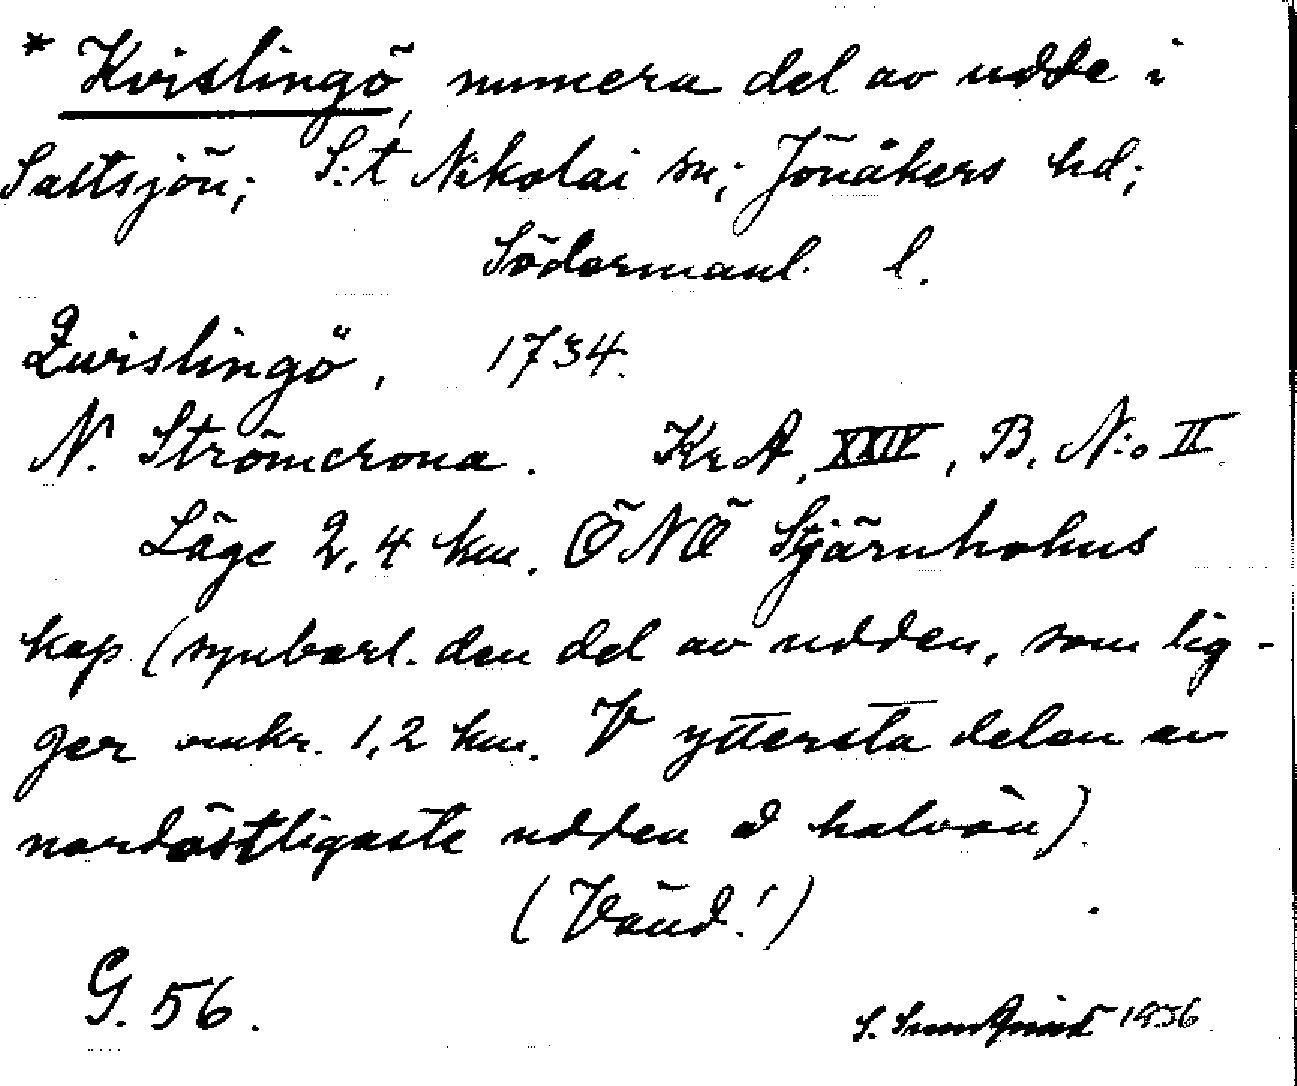 * Kvislingö, numera del av udde i
Saltsjön; S:t Nikolai sn; Jönåkers hd;
Södermanl. l.
Qwislingö, 1734.
N. Strömcrona. KrA, XXIV, B. N:o II
Läge 2,4 km. ÖNÖ Stjärnholms
kap. (synbarl. den del av udden, som lig-
ger omkr. 1,2 km. V yttersta delen av
nordöstligaste udden å halvön).
(Vänd!)
G. 56.
S. 1936